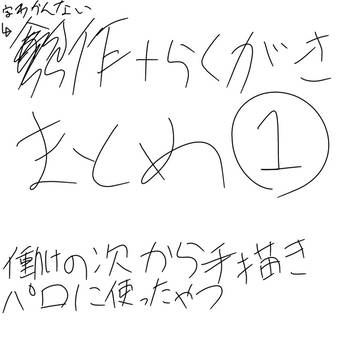 字わかんない
↳
作+らくがき
まとめ①
働けの次から手描き
パロに使ったやつ